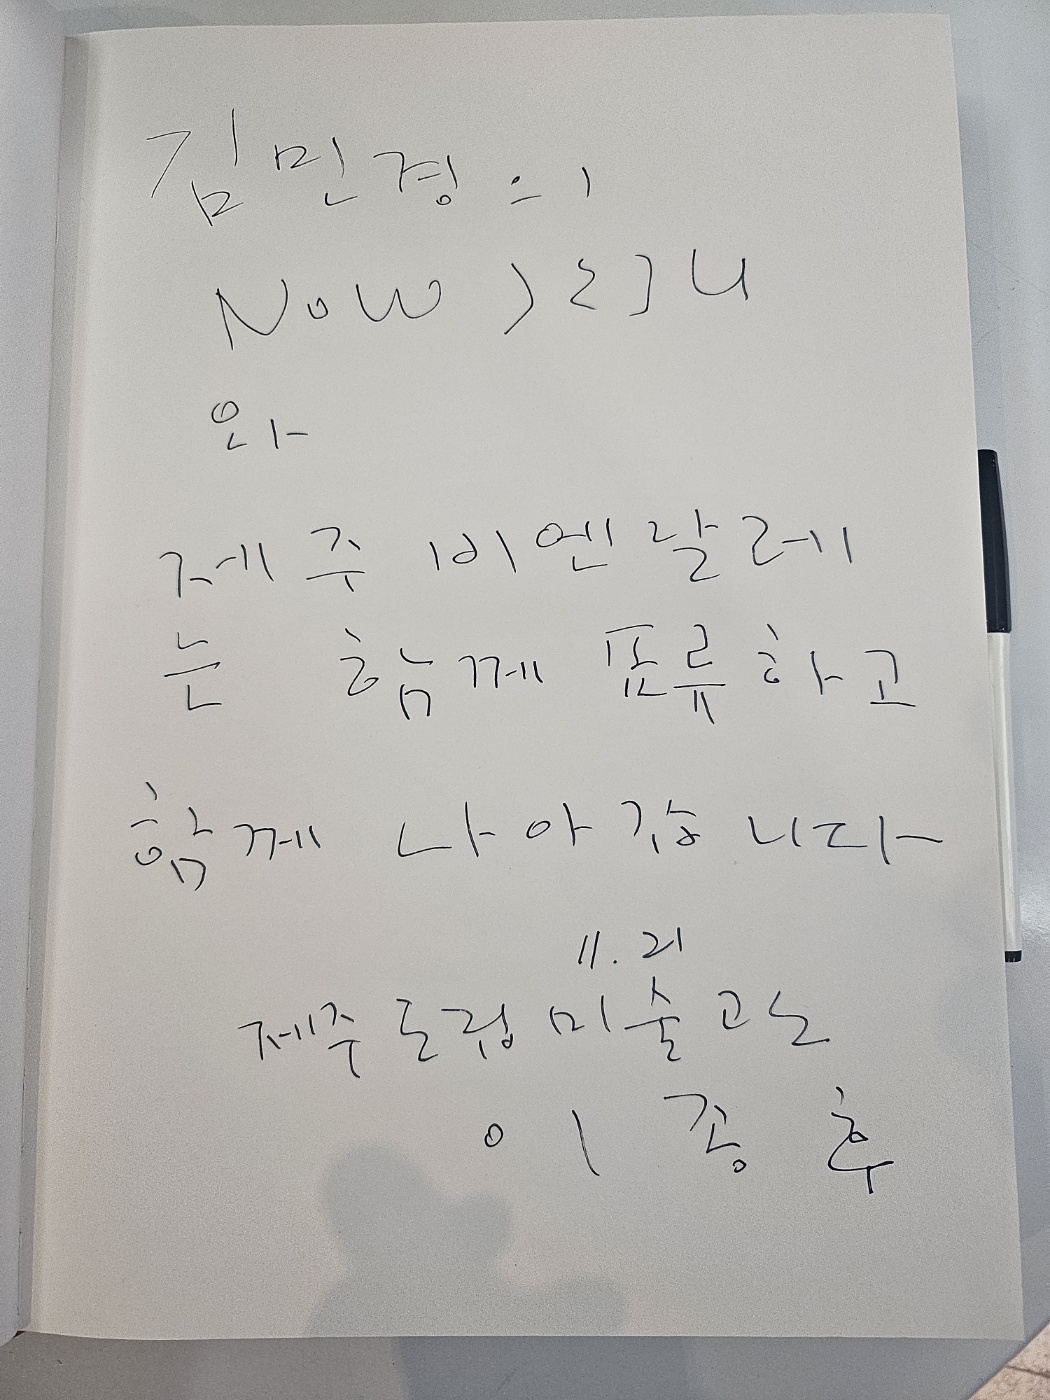 김민경의
NOW
와
제주 비엔날레
는 함께 표류하고
함께 나아갑니다
11. 21
제주도립미술관
이종후